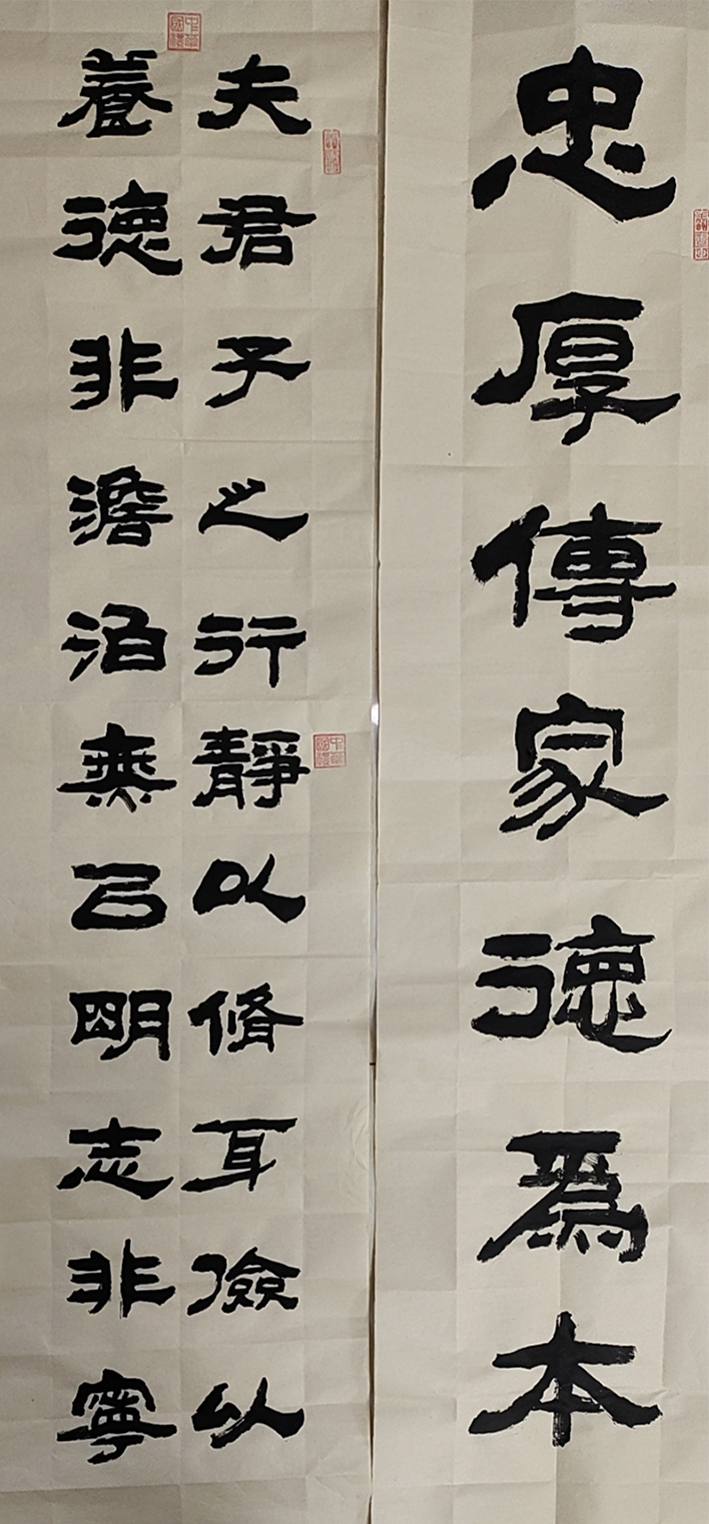 忠厚傳家德爲本
夫君子之行靜以脩耳儉以
養德非澹泊無㠯朙志非寧